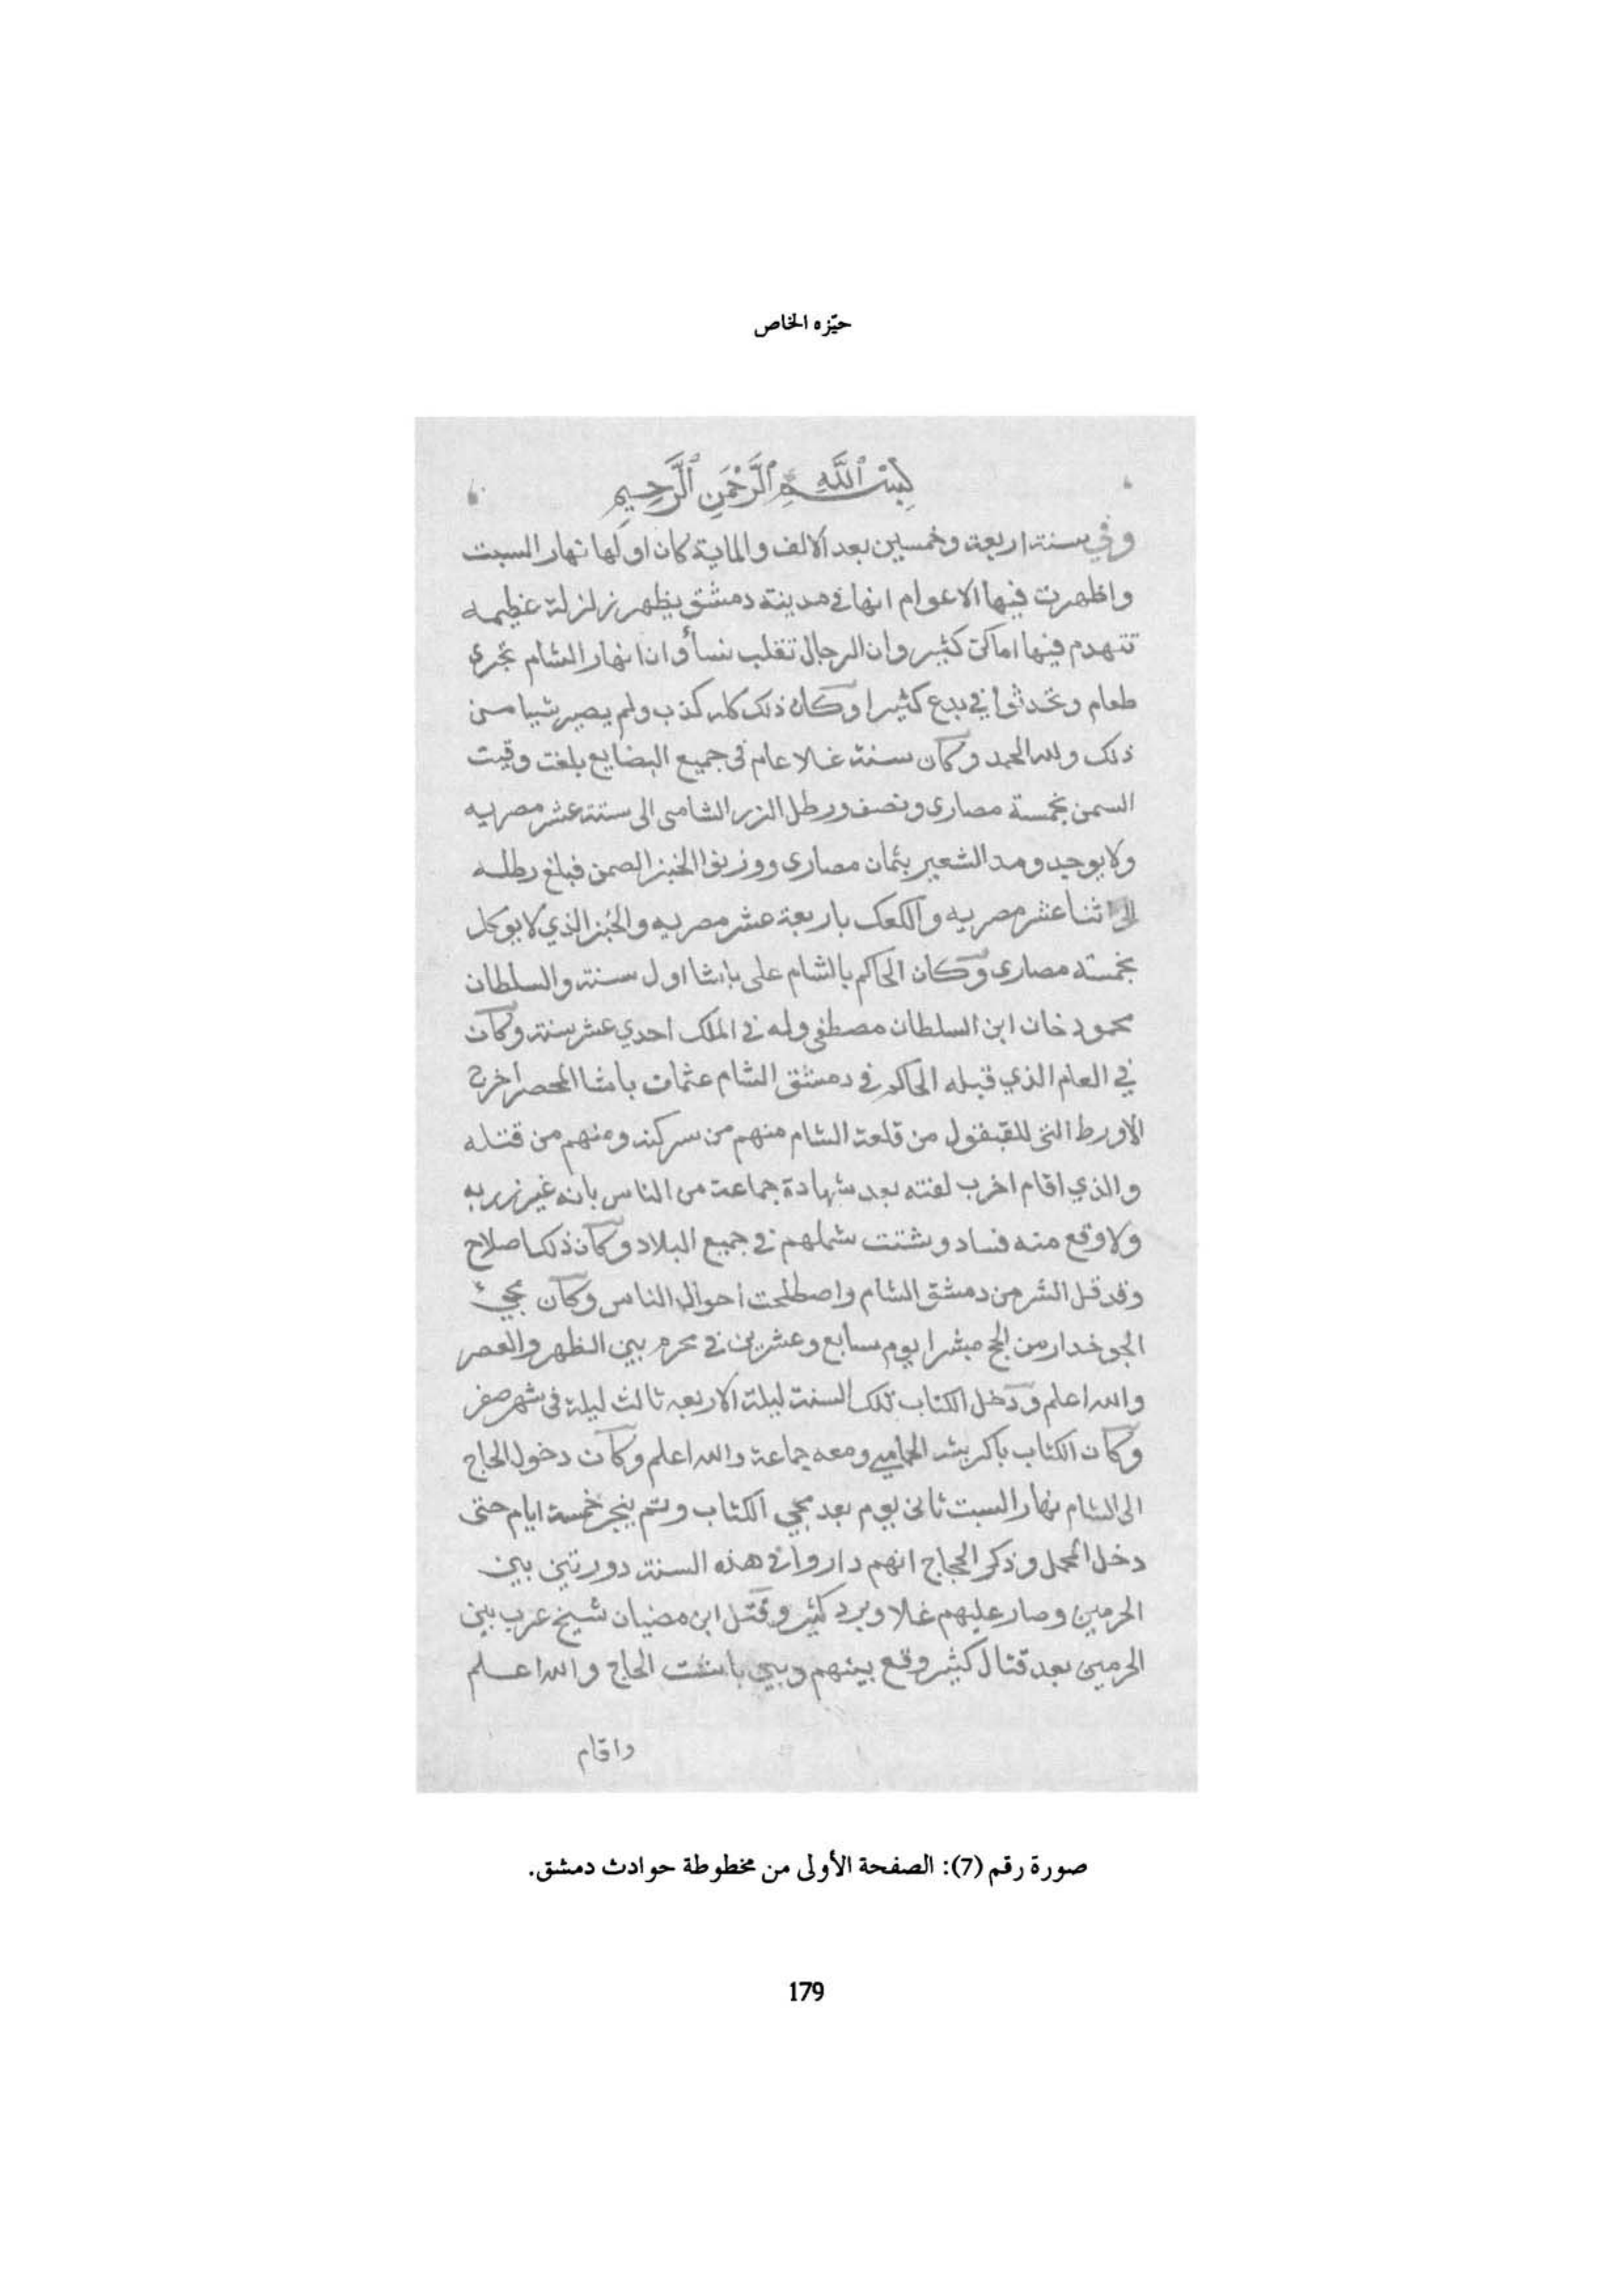 حيّزه الخاص
بسم الله الرحمن الرحيم
وفي سنة اربعة وخمسين بعد الالف والماية كان اولها نهار السبت
واظهرت فيها الاعوام انها في مدينة دمشق يظهر زلزلة عظيمه
تتهدم فيها اماكن كثير وان الرجال تنقلب نسأ وان انهار الشام تجرى
طعام وتحدثوا في بدع كثيرا وكان ذلك كله كذب ولم يصير شيا من
ذلك ولله الحمد وكان سنة غلا عام في جميع البضايع بلغت وقيت
السمن بخمسة مصارى ونصف ورطل الرز الشامى الى ستة عشر مصريه
ولا يوجد ومد الشعير بثمان مصارى ووزنوا الخبز الصمن فبلغ رطله
الى اثنا عشر مصريه والكعك باربعة عشر مصريه والخبز الذي لا يوكل
بخمسة مصارى وكان الحاكم بالشام على باشا اول سنة والسلطان
محمود خان ابن السلطان مصطفى وله في الملك احدي عشر سنة وكان
في العام الذي قبله الحاكم في دمشق الشام عثمان باشا المحصل اخرج
الاورط التي للقبقول من قلعة الشام منهم من سركنه ومنهم من قتله
والذي اقام اخرب لغته بعد شهادة جماعة من الناس بانه غير زربه
ولا وقع منه فساد وشتت شملهم في جميع البلاد وكان ذلك اصلاح
وقد قل الشر من دمشق الشام واصطلحت احوال الناس وكان مجئ
الجوخدار من الحج مبشرا يوم سابع وعشرين في محرم بين الظهر والعصر
والله اعلم ودخل الكتاب تلك السنة ليلة الاربعه ثالث ليلة في شهر صفر
وكان الكتاب باكر بشه الحمامي ومعه جماعة والله اعلم وكان دخول الحاج
الى الشام نهار السبت ثانى يوم بعد مجي الكتاب وتم ينجر خمسة ايام حتى
دخل المحمل وذكر الحجاج انهم داروا في هذه السنة دورتين بين
الحرمين وصار عليهم غلا وبرد كثير وقتل ابن مضيان شيخ عرب بين
الحرمين بعد قتال كثير وقع بينهم وبين باشت الحاج والله اعلم
واقام
صورة رقم (7): الصفحة الأولى من مخطوطة حوادث دمشق.
179